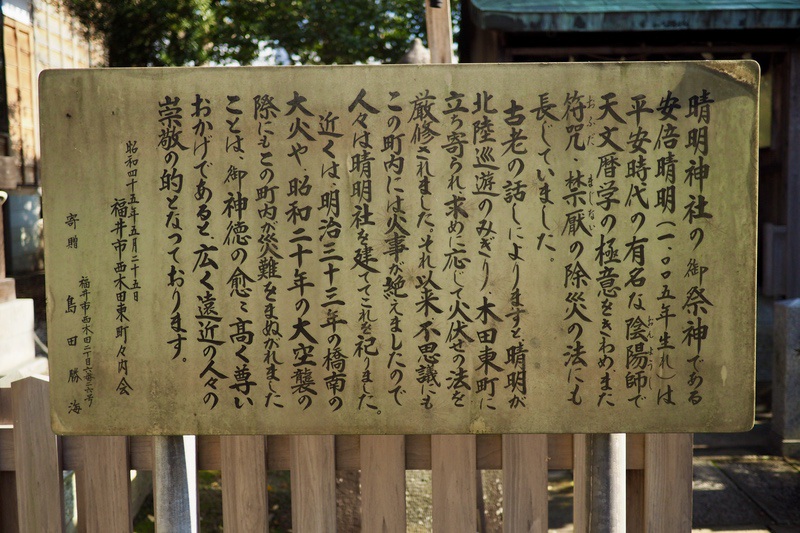 晴明神社の御祭神である
安倍晴明(一、〇〇五年生れ)は
平安時代の有名な陰陽師で
おんようし
天文暦学の極意をきわめまた
符咒、禁厭の除災の法にも
おふだ まじない
長じていました。
古老の話しによりますと晴明が
北陸巡遊のみぎり、木田東町に
立ち寄られ求めに応じて火伏せの法を
厳修されました。それ以来不思議にも
この町内には火事が絶えましたので
人々は晴明社を建ててこれを祀りました。
近くは、明治三十三年の橋南の
大火や、昭和二十年の大空襲の
際にもこの町内が災難をまぬがれました
ことは、御神徳の愈々高く尊い
おかげであると、広く遠近の人々の
崇敬の的となっております。
昭和四十五年五月二十五日
福井市西木田東町々内会
福井市西木田二丁目六番二六号
寄贈 島田勝海